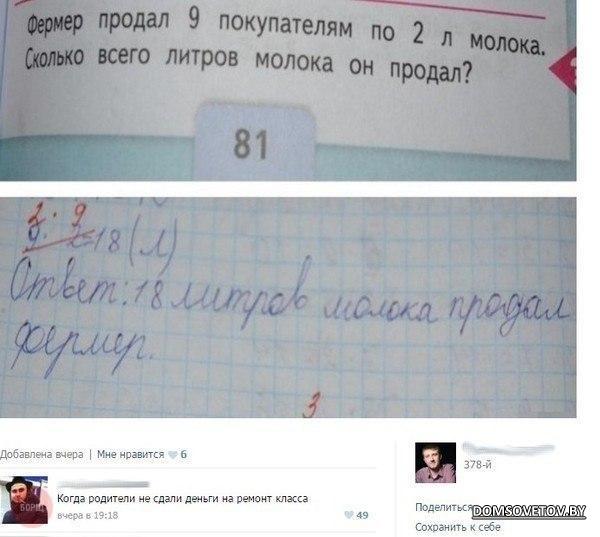 Фермер продал 9 покупателям по 2 л молока.
Сколько всего литров молока он продал?
81
2 · 9
9 · 2=18 (л)
Ответ: 18 литров молока продал
фермер.
3
Добавлена вчера | Мне нравится 6
378-й
Когда родители не сдали деньги на ремонт класса
БОРЩ
вчера в 19:18
49
Поделиться
DOMSOVETOV.BY
Сохранить к себе